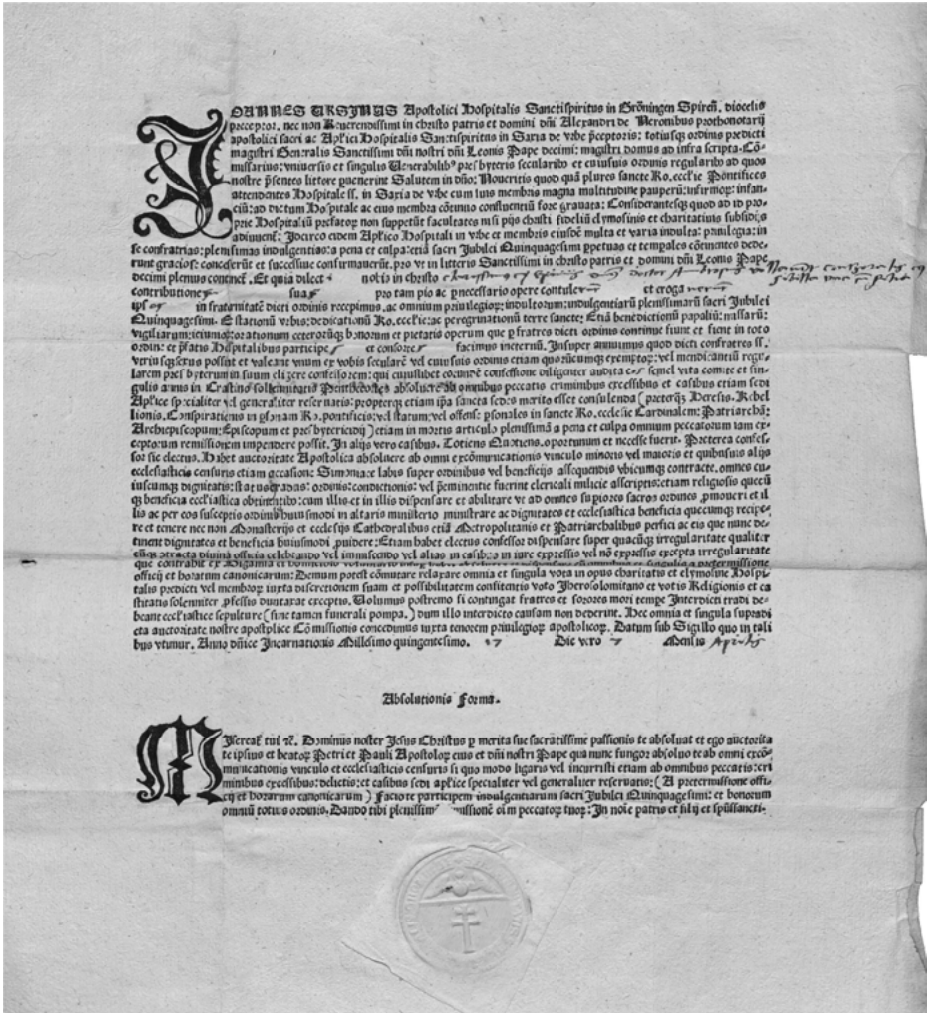 JOANNES URSINUS Apostolici Hospitalis Sanctispiritus in Gröningen Spireñ. diocesis
preceptor. nec non Reuerendissimi in christo patris et domini dñi Alexandri de Neronibus prothonotarij
apostolici sacri ac Aplici Hospitalis Sanctispiritus in Saxia de vrbe pceptoris: totiusqȝ ordinis predicti
magistri Generalis Sanctissimi dñi nostri dñi Leonis Pape decimi: magistri domus ad infra scripta Cō-
missarius: vniuersis et singulis Uenerabilibꝰ presbyteris secularibꝰ et cuiusuis ordinis regularibꝰ ad quos
nostre pñtes littere puenerint Salutem in dño: Noueritis quod quā plures sancte Ro. ecclie Pontifices
attendentes Hospitale ss. in Saxia de vrbe cum suis membris magna multitudine pauperū: infirmoꝝ: infan-
ciū: ad dictum Hospitale ac eius membra cōtinuo confluentiū fore grauata: Considerantesqȝ quod ad id pro-
prie Hospitaliū prefatoꝝ non suppetūt facultates nisi pijs christi fideliū elymosinis et charitatiuis subsidijs
adiuuent: Idcirco eidem Aplico Hospitali in vrbe et membris eiusdē multa et varia indulta: priuilegia: in
se confratrias: plenissimas indulgentias: a pena et culpa: etiā sacri Jubilei Quinquagesimi ppetuas et tempales cōtinentes dede-
runt graciose: concesserūt et successiue confirmauerūt. pro vt in litteris Sanctissimi in christo patris et domini dñi Leonis Pape
decimi plenius continet. Et quia dilect nobis in christo
contributione sua pro tam pio ac pnecessario opere contuler et eroga
ips in fraternitatē dicti ordinis recepimus. ac omnium priuilegioꝝ: indultorum: indulgentiarū plenissimarū sacri Jubilei
Quinquagesimi. Et stationū vrbis: dedicationū Ro. ecclie: ac peregrinationū terre sancte: Etiā benedictionū papaliū: missarū:
vigiliarum: ieiunioꝝ: orationum ceterorūqȝ bonorum et pietatis operum que p fratres dicti ordinis continue fiunt et fient in toto
ordin: et pfatis Hospitalibus participe et consores facimus ineternū. Insuper annuimus quod dicti confratres ss.
vtriusqȝ sexus possint et valeant vnum ex vobis secularē vel cuiusuis ordinis etiam quorūcumqȝ exemptoꝝ: vel mendicantiū regu-
larem presbyterum in suum eligere confessorem: qui cuiuslibet eorundē confessione diligenter audita eos semel vita comite et sin-
gulis annis in Crastino sollemnitatis Penthecostes absoluere ab omnibus peccatis criminibus excessibus et casibus etiam sedi
Aplice specialiter vel generaliter reseruatis: propterqȝ etiam ipa sancta sedes merito esset consulenda (preterqȝ Heresis. Rebel
lionis. Conspirationis in psonam Ro. pontificis: vel statum: vel offense psonales in sancte Ro. ecclesie Cardinalem: Patriarchā:
Archiepiscopum: Episcopum et presbytericidij) etiam in mortis articulo plenissimā a pena et culpa omnium peccatorum iam ex-
ceptorum remissionem impendere possit. In alijs vero casibus. Totiens Quotiens. oportunum et necesse fuerit. Preterea confes-
sor sic electus. Habet auctoritate Apostolica absoluere ab omni excōmunicationis vinculo minoris vel maioris et quibusuis alijs
ecclesiasticis censuris etiam occasione Simoniace labis super ordinibus vel beneficijs assequendis vbicumqȝ contracte. omnes cu-
iuscumqȝ dignitatis: status: gradus: ordinis: condictionis: vel pminentie fuerint clericali milicie asscriptis: etiam religiosis quecū
qȝ beneficia ecclīastica obtinentibo: cum illis et in illis dispensare et abilitare vt ad omnes supiores sacros ordines pmoueri et il
lis ac per eos susceptis ordinibus huiusmodi in altaris ministerio ministrare ac dignitates et ecclesiastica beneficia quecumqȝ recipe-
re et tenere nec non Monasterijs et ecclesijs Cathedralibus etiā Metropolitanis et Patriarchalibus perfici ac eis que nunc de-
tinent dignitates et beneficia huiusmodi puidere: Etiam habet electus confessor dispensare super quacūqȝ irregularitate qualiter
cūqȝ ctracta diuina officia celebrando vel immiscendo vel alias in casibus in iure expressis vel nō expressis excepta irregularitate
que contrahit ex Bigamia et homicidio voluntario
officij et horatum canonicarum: Demum potest cōmutare relaxare omnia et singula vota in opus charitatis et elymosine Hospi-
talis predicti vel membroꝝ iuxta discretionem suam et possibilitatem confitentis voto Jherosolomitano et votis Religionis et ca
stitatis solenniter pfessis duntaxat exceptis. Uolumus postremo si contingat fratres et sorores mori tempe Interdicti tradi de-
beant ecclīastice sepulture (sine tamen funerali pompa.) dum illo interdicto causam non dederint. Hec omnia et singula supradi
cta auctoritate nostre apostplice Cōmissionis concedimus iuxta tenorem priuilegioꝝ apostolicoꝝ. Datum sub Sigillo quo in tali
bus vtunur. Anno dñice Incarnationis Millesimo quingentesimo. 17 Die vero 7 Mensis Aprilis
Absolutionis Forma.
Misereat tui ꝛc. Dominus noster Jesus Christus p merita sue sacratissime passionis te absoluat et ego auctorita
te ipsius et beatoꝝ Petri et Pauli Apostoloꝝ eius et dñi nostri Pape qua nunc fungor absoluo te ab omni excō-
municationis vinculo et ecclesiasticis censuris si quo modo ligaris vel incurristi etiam ab omnibus peccatis: cri
minibus excessibus: delictis: et casibus sedi aplice specialiter vel generaliter reseruatis: (A pretermissione offi-
cij et horarum canonicarum) Facio te participem indulgentiarum sacri Jubilei Quinquagesimi: et bonorum
omniū totius ordinis. Dando tibi plenissim missionē oīm peccatoꝝ tuoꝝ: In noīe patris et filij et spūssancti.